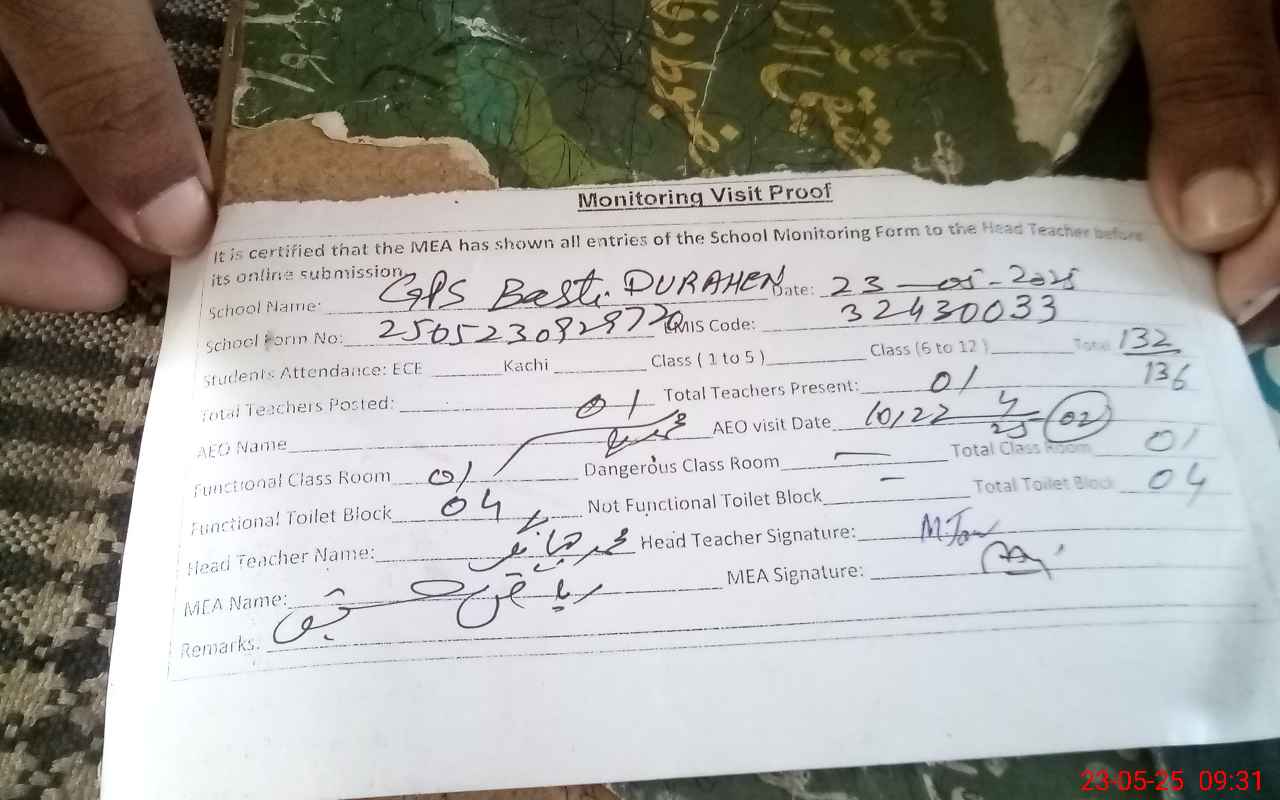 Monitoring Visit Proof
It is certified that the MEA has shown all entries of the School Monitoring Form to the Head Teacher before
its online submission.
School Name: GPS Basti DURAHEN Date: 23-05-2025
School Form No: EMIS Code: 32430033
Students Attendance: ECE Kachi Class ( 1 to 5 ) Class (6 to 12 ) Total 132
136
Total Teachers Posted: 01 Total Teachers Present: 01
AEO Name AEO visit Date 10,22 4/25 02
Functional Class Room 01 Dangerous Class Room — Total Class Room 01
Functional Toilet Block 04 Not Functional Toilet Block — Total Toilet Block 04
Head Teacher Name: محمد Head Teacher Signature:
MEA Name: MEA Signature:
Remarks:
23-05-25 09:31